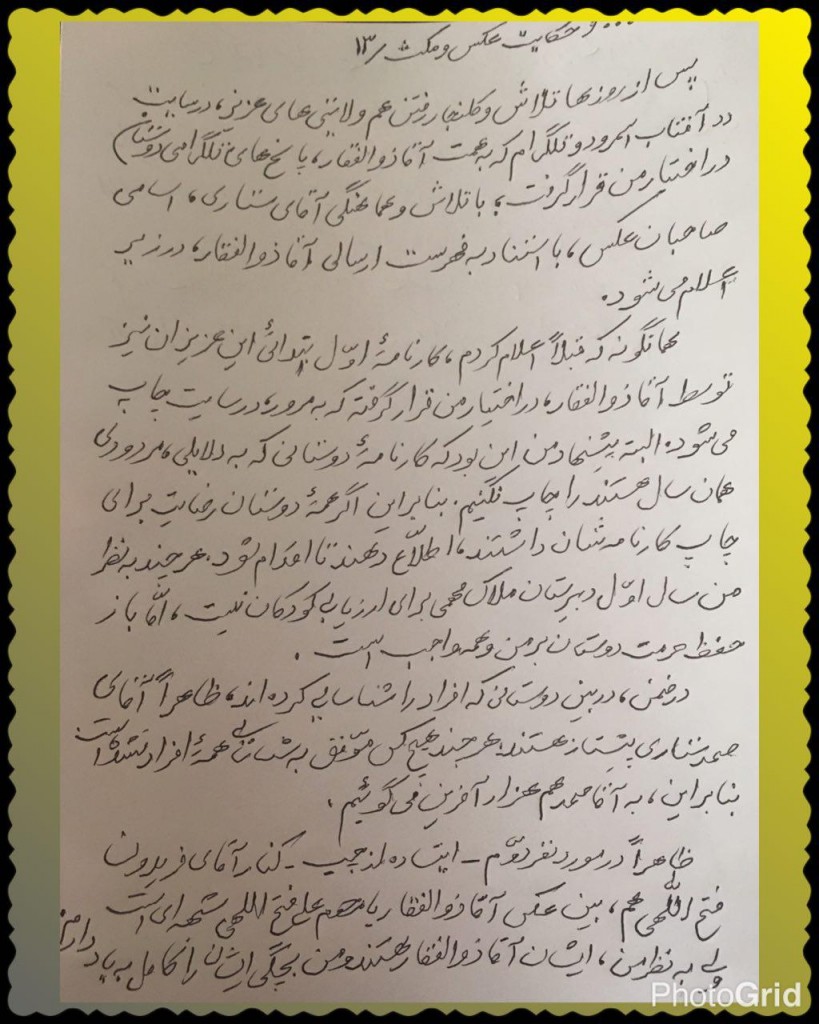 .... و حکایت عکس و مکث/۱۳
پس از روزها تلاش و کلنجار رفتن هم ولایتی های عزیز، در سایت
دد آفتاب آمرود و تلگرام که به همت آقا ذوالفقار، پاسخ های تلگرامی دوستان
در اختیار من قرار گرفت؛ با تلاش و هماهنگی آقای ستاری، اسامی
صاحبان عکس، با استناد به فهرست ارسالی آقا ذوالفقار، در زیر
اعلام می شود.
همانگونه که قبلاً اعلام کردم، کارنامهٔ اوّل ابتدائیِ این عزیزان نیز
توسط آقا ذوالفقار، در اختیار من قرار گرفته که به مرور، در سایت چاپ
می شود. البته پیشنهاد من این بود که کارنامهٔ دوستانی که به دلایلی، مردودی
همان سال هستند را چاپ نکنیم. بنابراین اگر همهٔ دوستان رضایتِ برای
چاپ کارنامه شان داشتند، اطلاّع دهند تا اقدام شود. هر چند به نظر
من سال اوّل دبستان ملاک مهمی برای ارزیابی کودکان نیست، امّا باز
حفظ حرمت دوستان بر من و همه واجب است.
در ضمن، در بین دوستانی که افراد را شناسایی کرده اند، ظاهراً آقای
صمد ستاری پیشتاز هستند. هر چند هیچ کس موّفق به شناسایی همهٔ افراد نشده است
بنابراین، به آقا صمد هم هزار آفرین می گوئیم.
ظاهراً در مورد نفر دوّم - ایستاده از چپ - کنار آقای فریدون
فتح اللّهی هم، بین عکس آقا ذوالفقار یا مرحوم علی فتح اللهی شبهه ای است
ولی به نظر من، ایشان آقا ذوالفقار هستند و من بچگی ایشان را کامل به یاد دارم
PhotoGrid